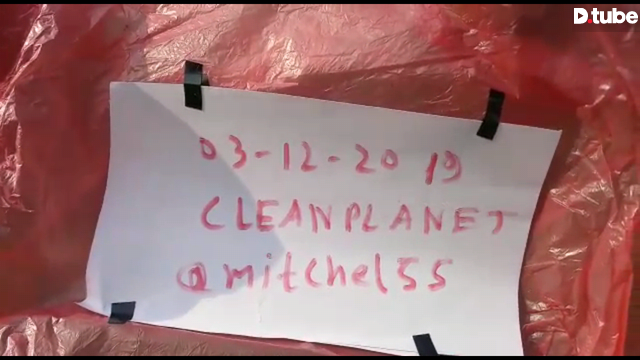 D.tube
03-12-2019
CLEANPLANET
@mitchel55